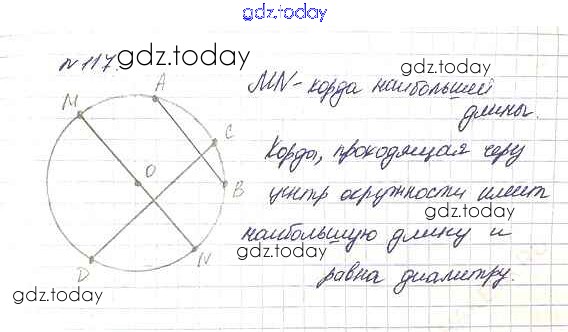 gdz.today
№117.
gdz.today
gdz.today
M
A
C
O
B
D
N
MN - хорда наибольшей
длины.
Хорда, проходящая через
центр окружности имеет
gdz.today
наибольшую длину и
gdz.today
равна диаметру.
gdz.today